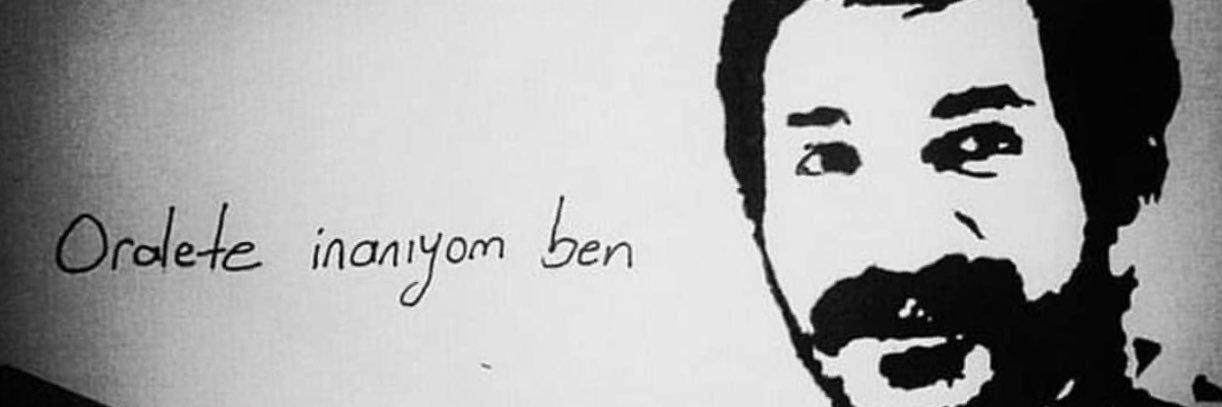 Oralete inanıyom ben